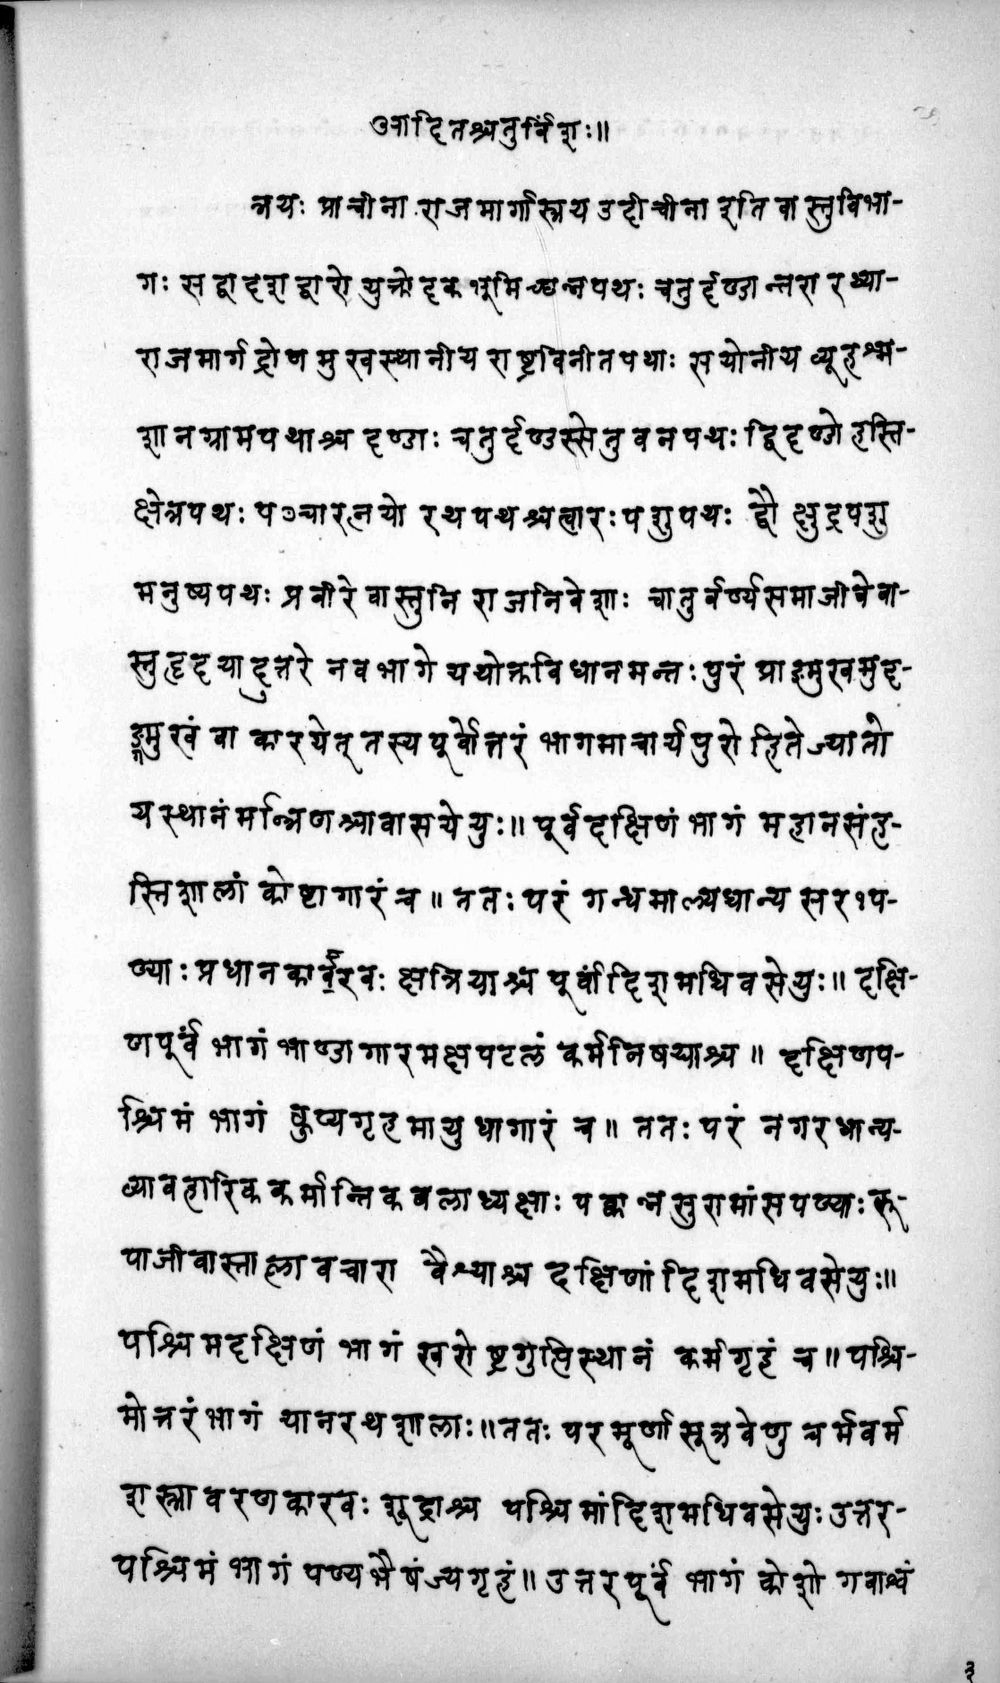 आदितश्चतुर्विंशः॥
त्रयः प्राचीना राजमार्गास्त्रय उदीचीना इति वास्तुविभा-
गः सद्वादशद्वारो युक्तोदकभूमिच्छन्नपथः चतुर्दण्डान्तरा रथ्या-
राजमार्गद्रोणमुखस्थानीय राष्ट्रविवीतपथाः सयोनीय व्यूहश्म-
शानग्रामपथाश्च दण्डाः चतुर्दण्डस्सेतुवनपथः द्विदण्डो हस्ति-
क्षेत्रपथः पञ्चारत्नयो रथपथश्चत्वारः पशुपथः द्वौ क्षुद्रपशु
मनुष्यपथः प्रवीरे वास्तुनि राजनिवेशः चातुर्वर्ण्यसमाजीवे वा-
स्तुहृदयादुत्तरे नवभागे यथोक्तविधानमन्तःपुरं प्राङ्मुखमुद-
ङ्मुखं वा कारयेत् तस्य पूर्वोत्तरं भागमाचार्यपुरोहितेज्यातो
यस्थानं मन्त्रिणश्चावासयेयुः॥ पूर्वदक्षिणं भागं महानसं ह-
स्तिशालां कोष्ठागारं च॥ ततः परं गन्धमाल्यधान्य सर१प-
ण्याः प्रधानकारवः क्षत्रियाश्च पूर्वां दिशमधिवसेयुः॥ दक्षि-
णपूर्वं भागं भाण्डागारमक्षपटलं कर्मनिषद्याश्च॥ दक्षिणप-
श्चिमं भागं कुप्यगृहमायुधागारं च॥ ततः परं नगरधान्य-
व्यावहारिककर्मान्तिकबलाध्यक्षाः पक्वान्नसुरामांसपण्याः रू-
पाजीवास्तालावचारा वैश्याश्च दक्षिणां दिशमधिवसेयुः॥
पश्चिमदक्षिणं भागं खरोष्ट्रगुप्तिस्थानं कर्मगृहं च॥ पश्चि-
मोत्तरं भागं यानरथशालाः॥ ततः परमूर्णासूत्रवेणुचर्मवर्म
शस्त्रावरणकारवः शूद्राश्च पश्चिमां दिशमधिवसेयुः उत्तर-
पश्चिमं भागं पण्यभैषज्यगृहं॥ उत्तरपूर्वं भागं कोशो गवाश्वं
३